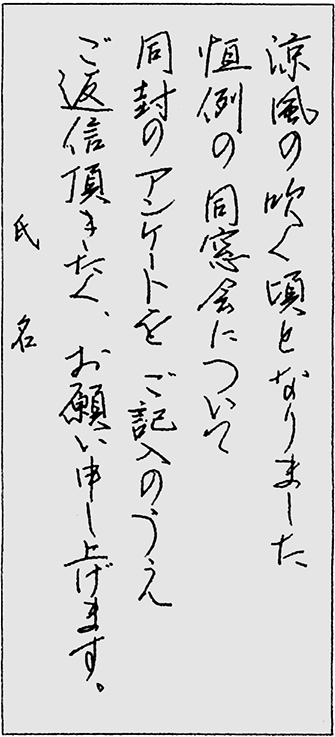 涼風の吹く頃となりました
恒例の同窓会について
同封のアンケートをご記入のうえ
ご返信頂きたく、お願い申し上げます。
氏名